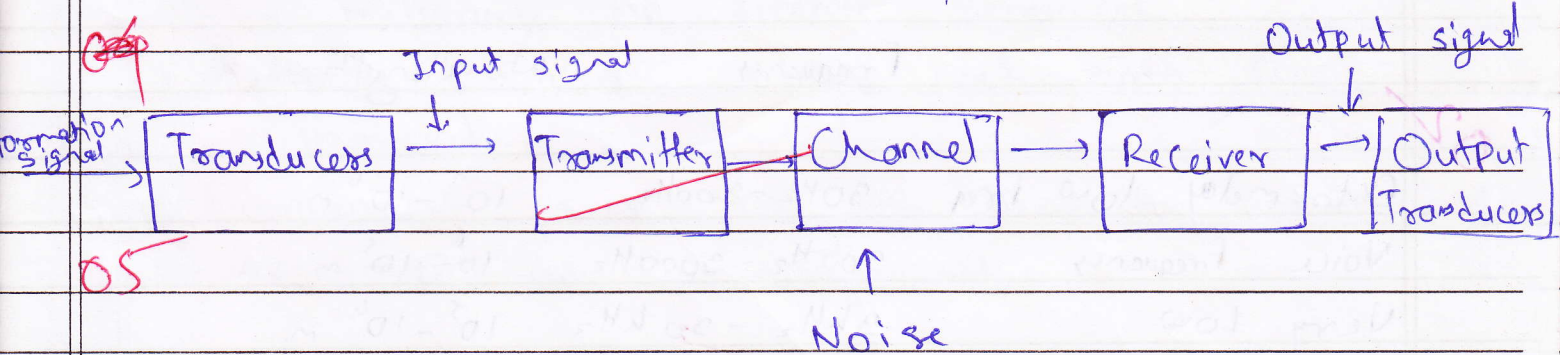 Output signal
Input signal
signal
Transducers
Transmitter
Channel
Receiver
Output
Transducers
05
Noise